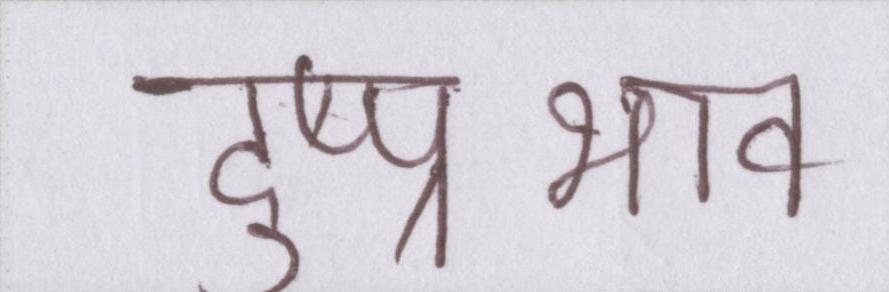 दुष्प्रभाव